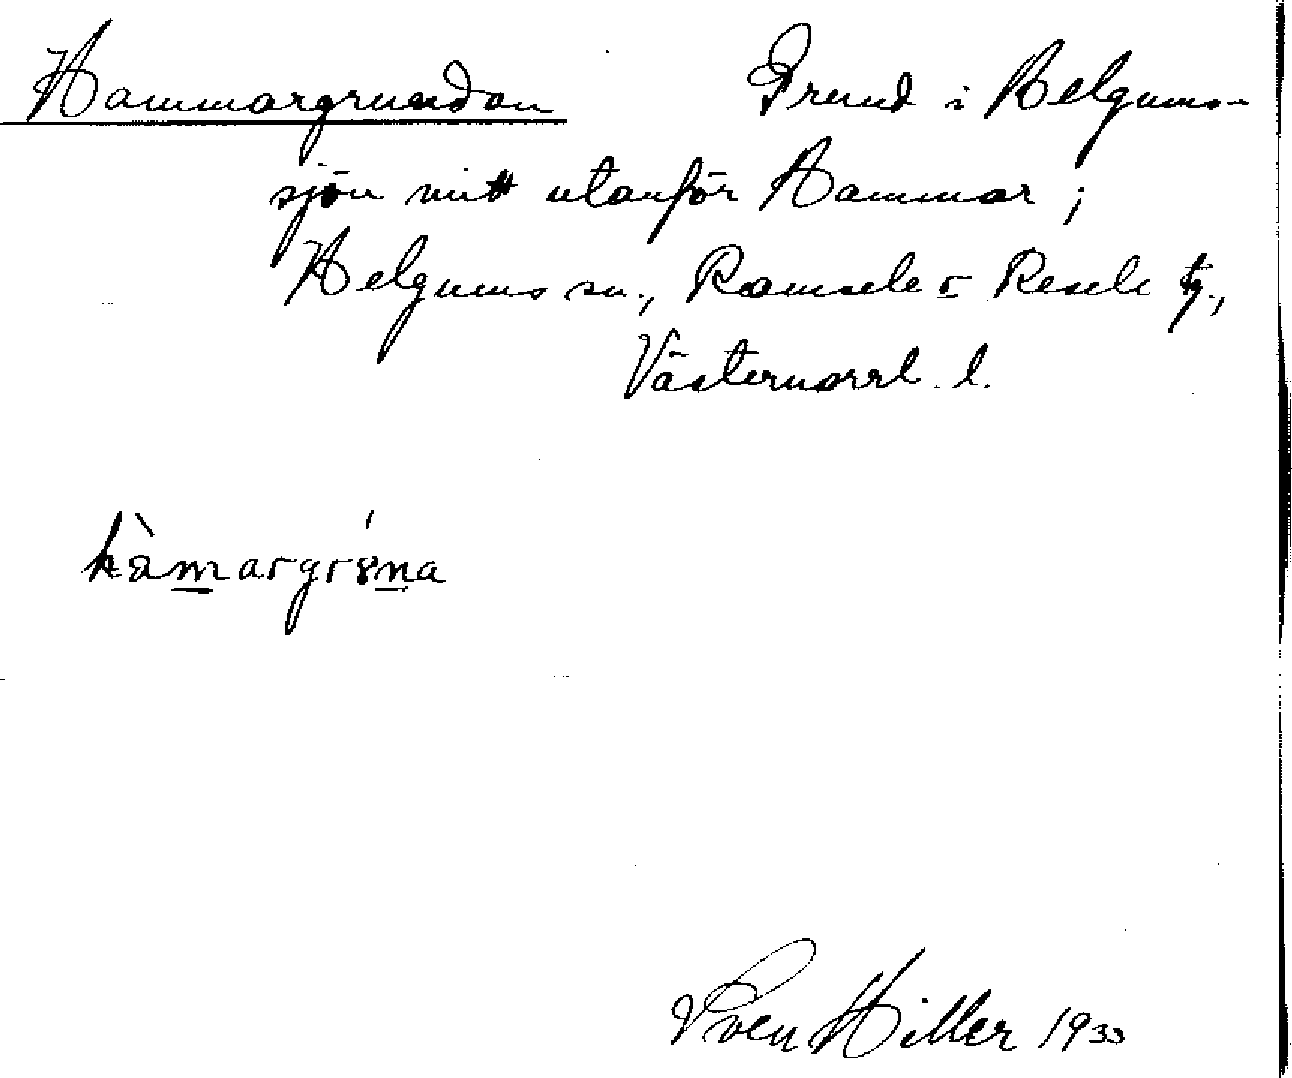 Hammargrundan Grund i Helgums-
sjön mitt utanför Hammar;
Helgums sn., Ramsele o Resele tg.,
Västernorrl. l.
hàmargrána
Sven Hiller 1933